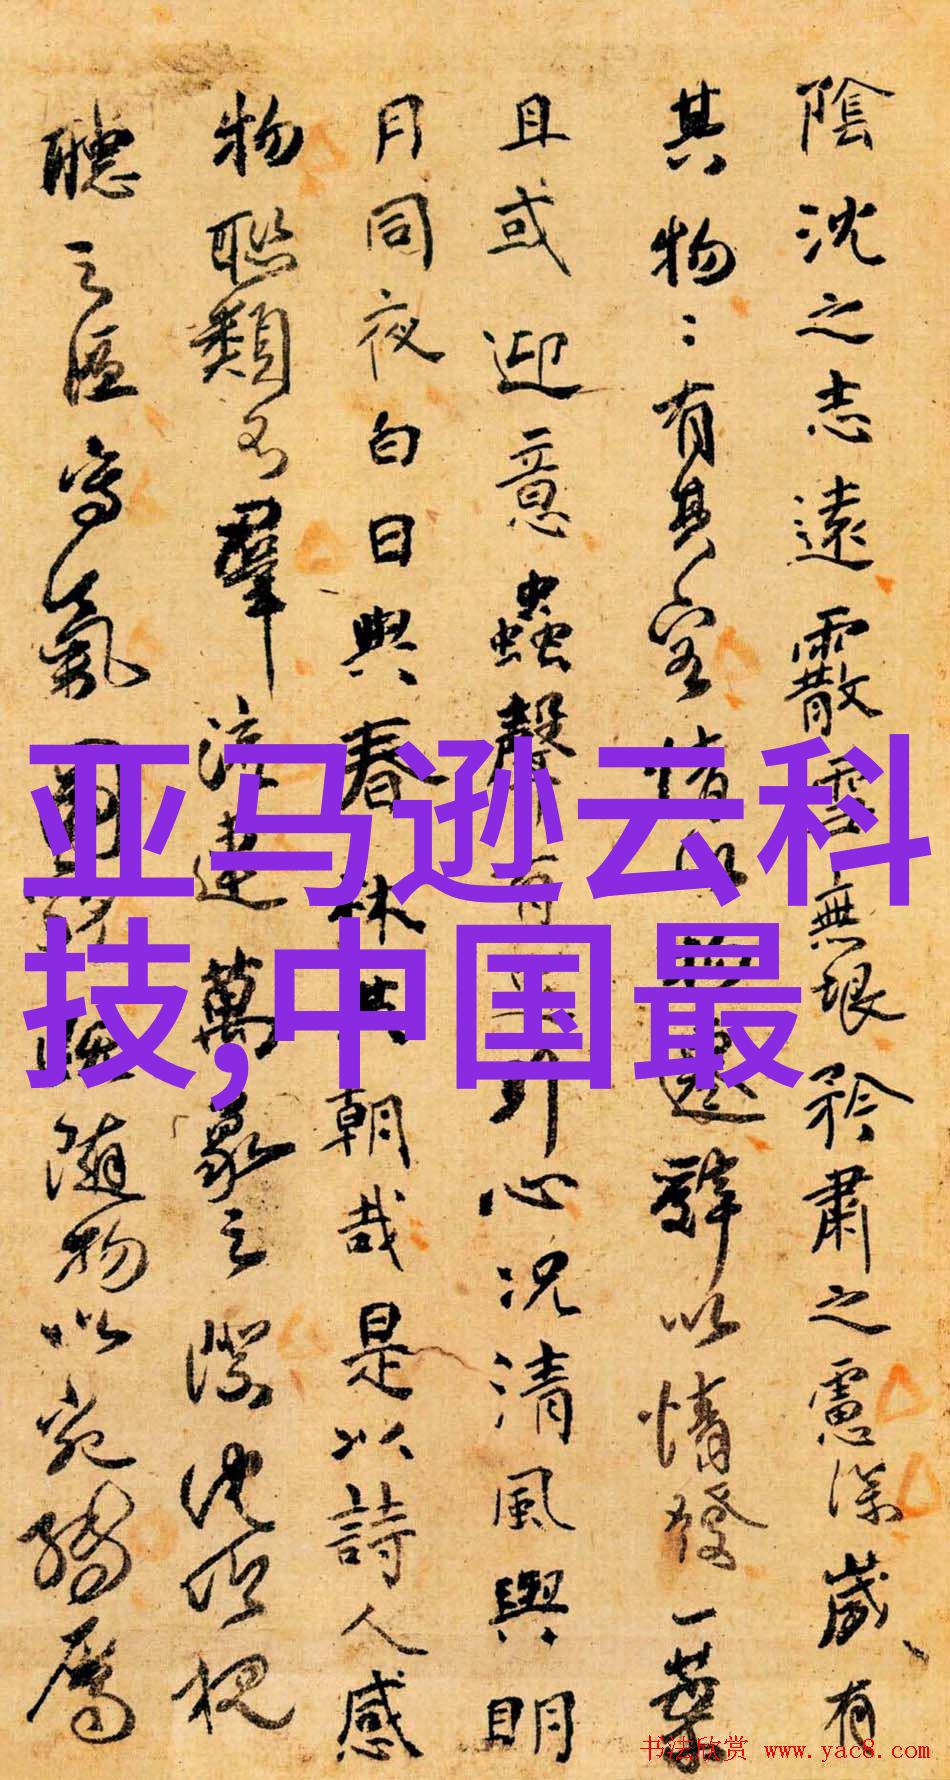 陰沈之志遠霰雪無垠矜肅之慮深歲有
其物〻有其容情以物遷辭以情發一葉
且或迎意蟲聲有足引心況清風與明
月同夜白日與春林共朝哉是以詩人感
物聯類不羣流連萬象之際沈吟視
聽之區寫氣圖隨物以宛轉屬
亚马逊云科
技,中国最
书法欣赏 www.yac8.com